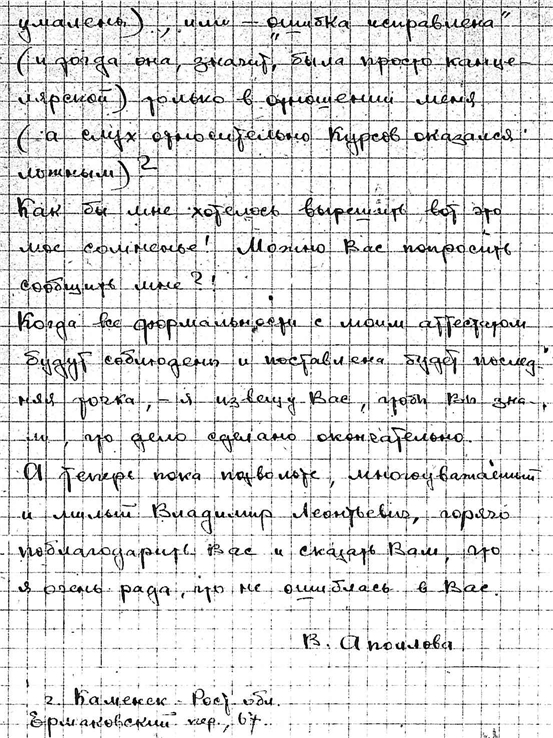 умалены)., или — „ошибка исправлена"
(и тогда она, значит, была просто канце-
лярской) только в отношении меня
(а слух относительно Курсов оказался
ложным)?
Как бы мне хотелось вырешить вот это
мое сомненье! Можно Вас попросить
сообщить мне?!
Когда все формальности с моим аттестатом
будут соблюдены и поставлена будет послед-
няя точка, — я извещу Вас, чтобы Вы зна-
ли, что дело сделано окончательно.
А теперь пока позвольте, многоуважаемый
и милый Владимир Леонтьевич, горячо
поблагодарить Вас и сказать Вам, что
я очень рада, что не ошиблась в Вас.
В.
г. Каменск Рост. обл.
Ермаковский пер., 67.